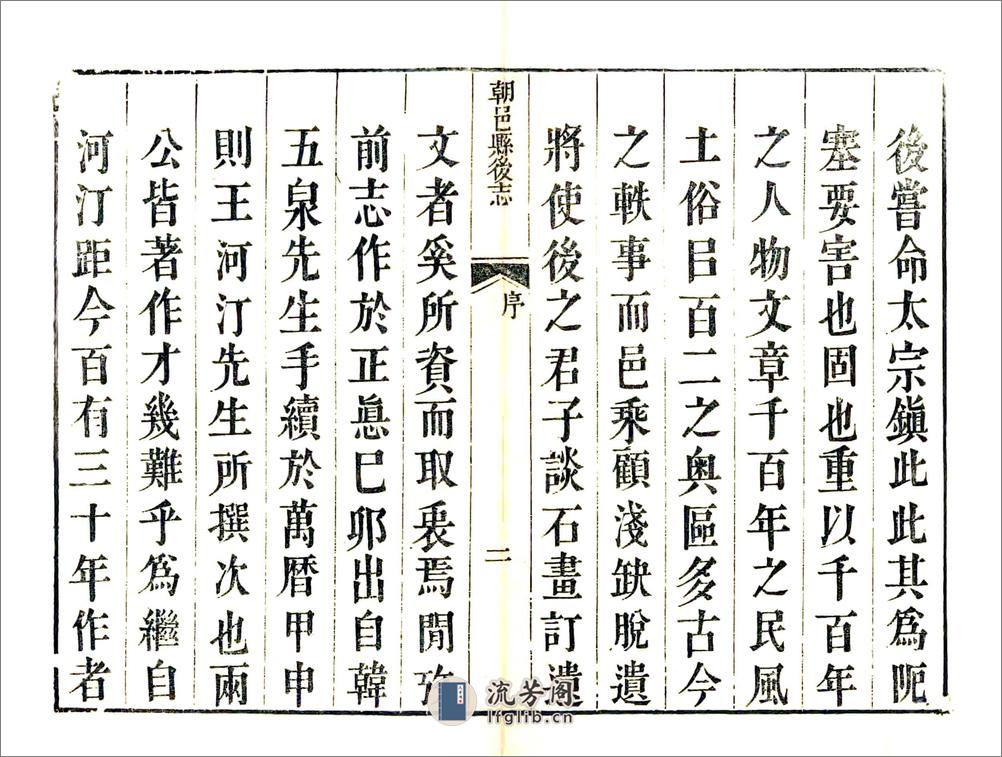 後嘗命太宗鎭此此其爲阨
塞要害也固也重以千百年
之人物文章千百年之民風
土俗目百二之奥區多古今
之軼事而邑乘顧淺缺脫遺
將使後之君子談石畫訂遺
朝邑縣後志
序
二
文者奚所資而取衷焉閒攷
前志作於正悳巳卯出自韓
五泉先生手續於萬曆甲申
則王河汀先生所撰次也兩
公皆著作才幾難乎爲繼自
河汀距今百有三十年作者
流芳阁
lfglib.cn